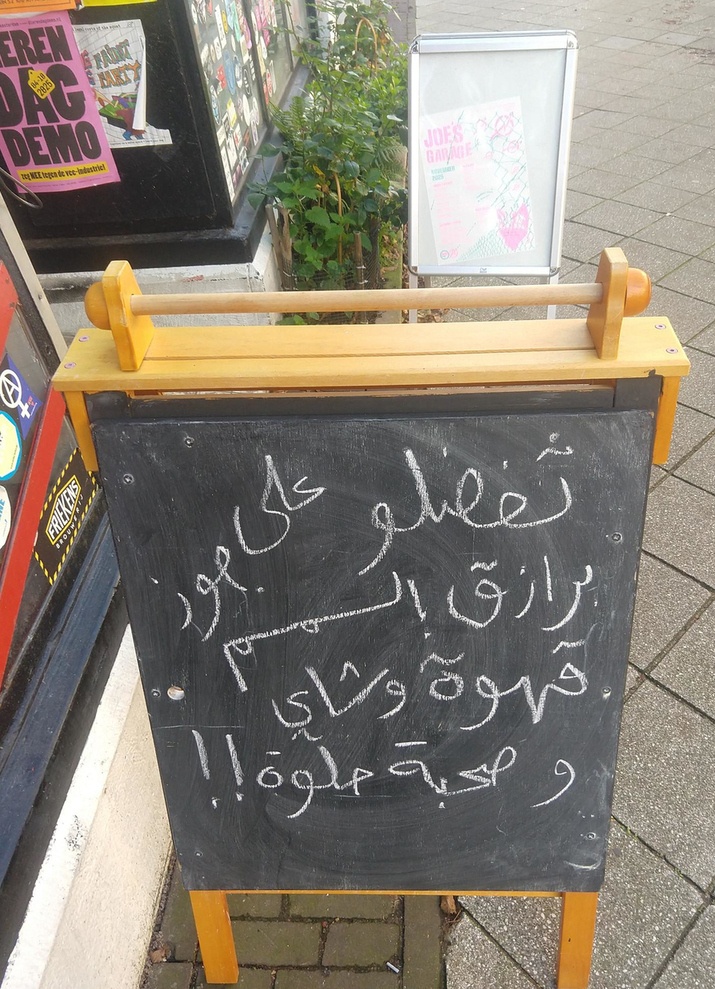 EREN
DAG
DEMO
zeg NEE tegen de vee-industrie!
JOES
GARAGE
FRIEKENS
تفضلو على جوز
برازق بالسمسم
قهوة وشاي
و صحبة حلوة!!